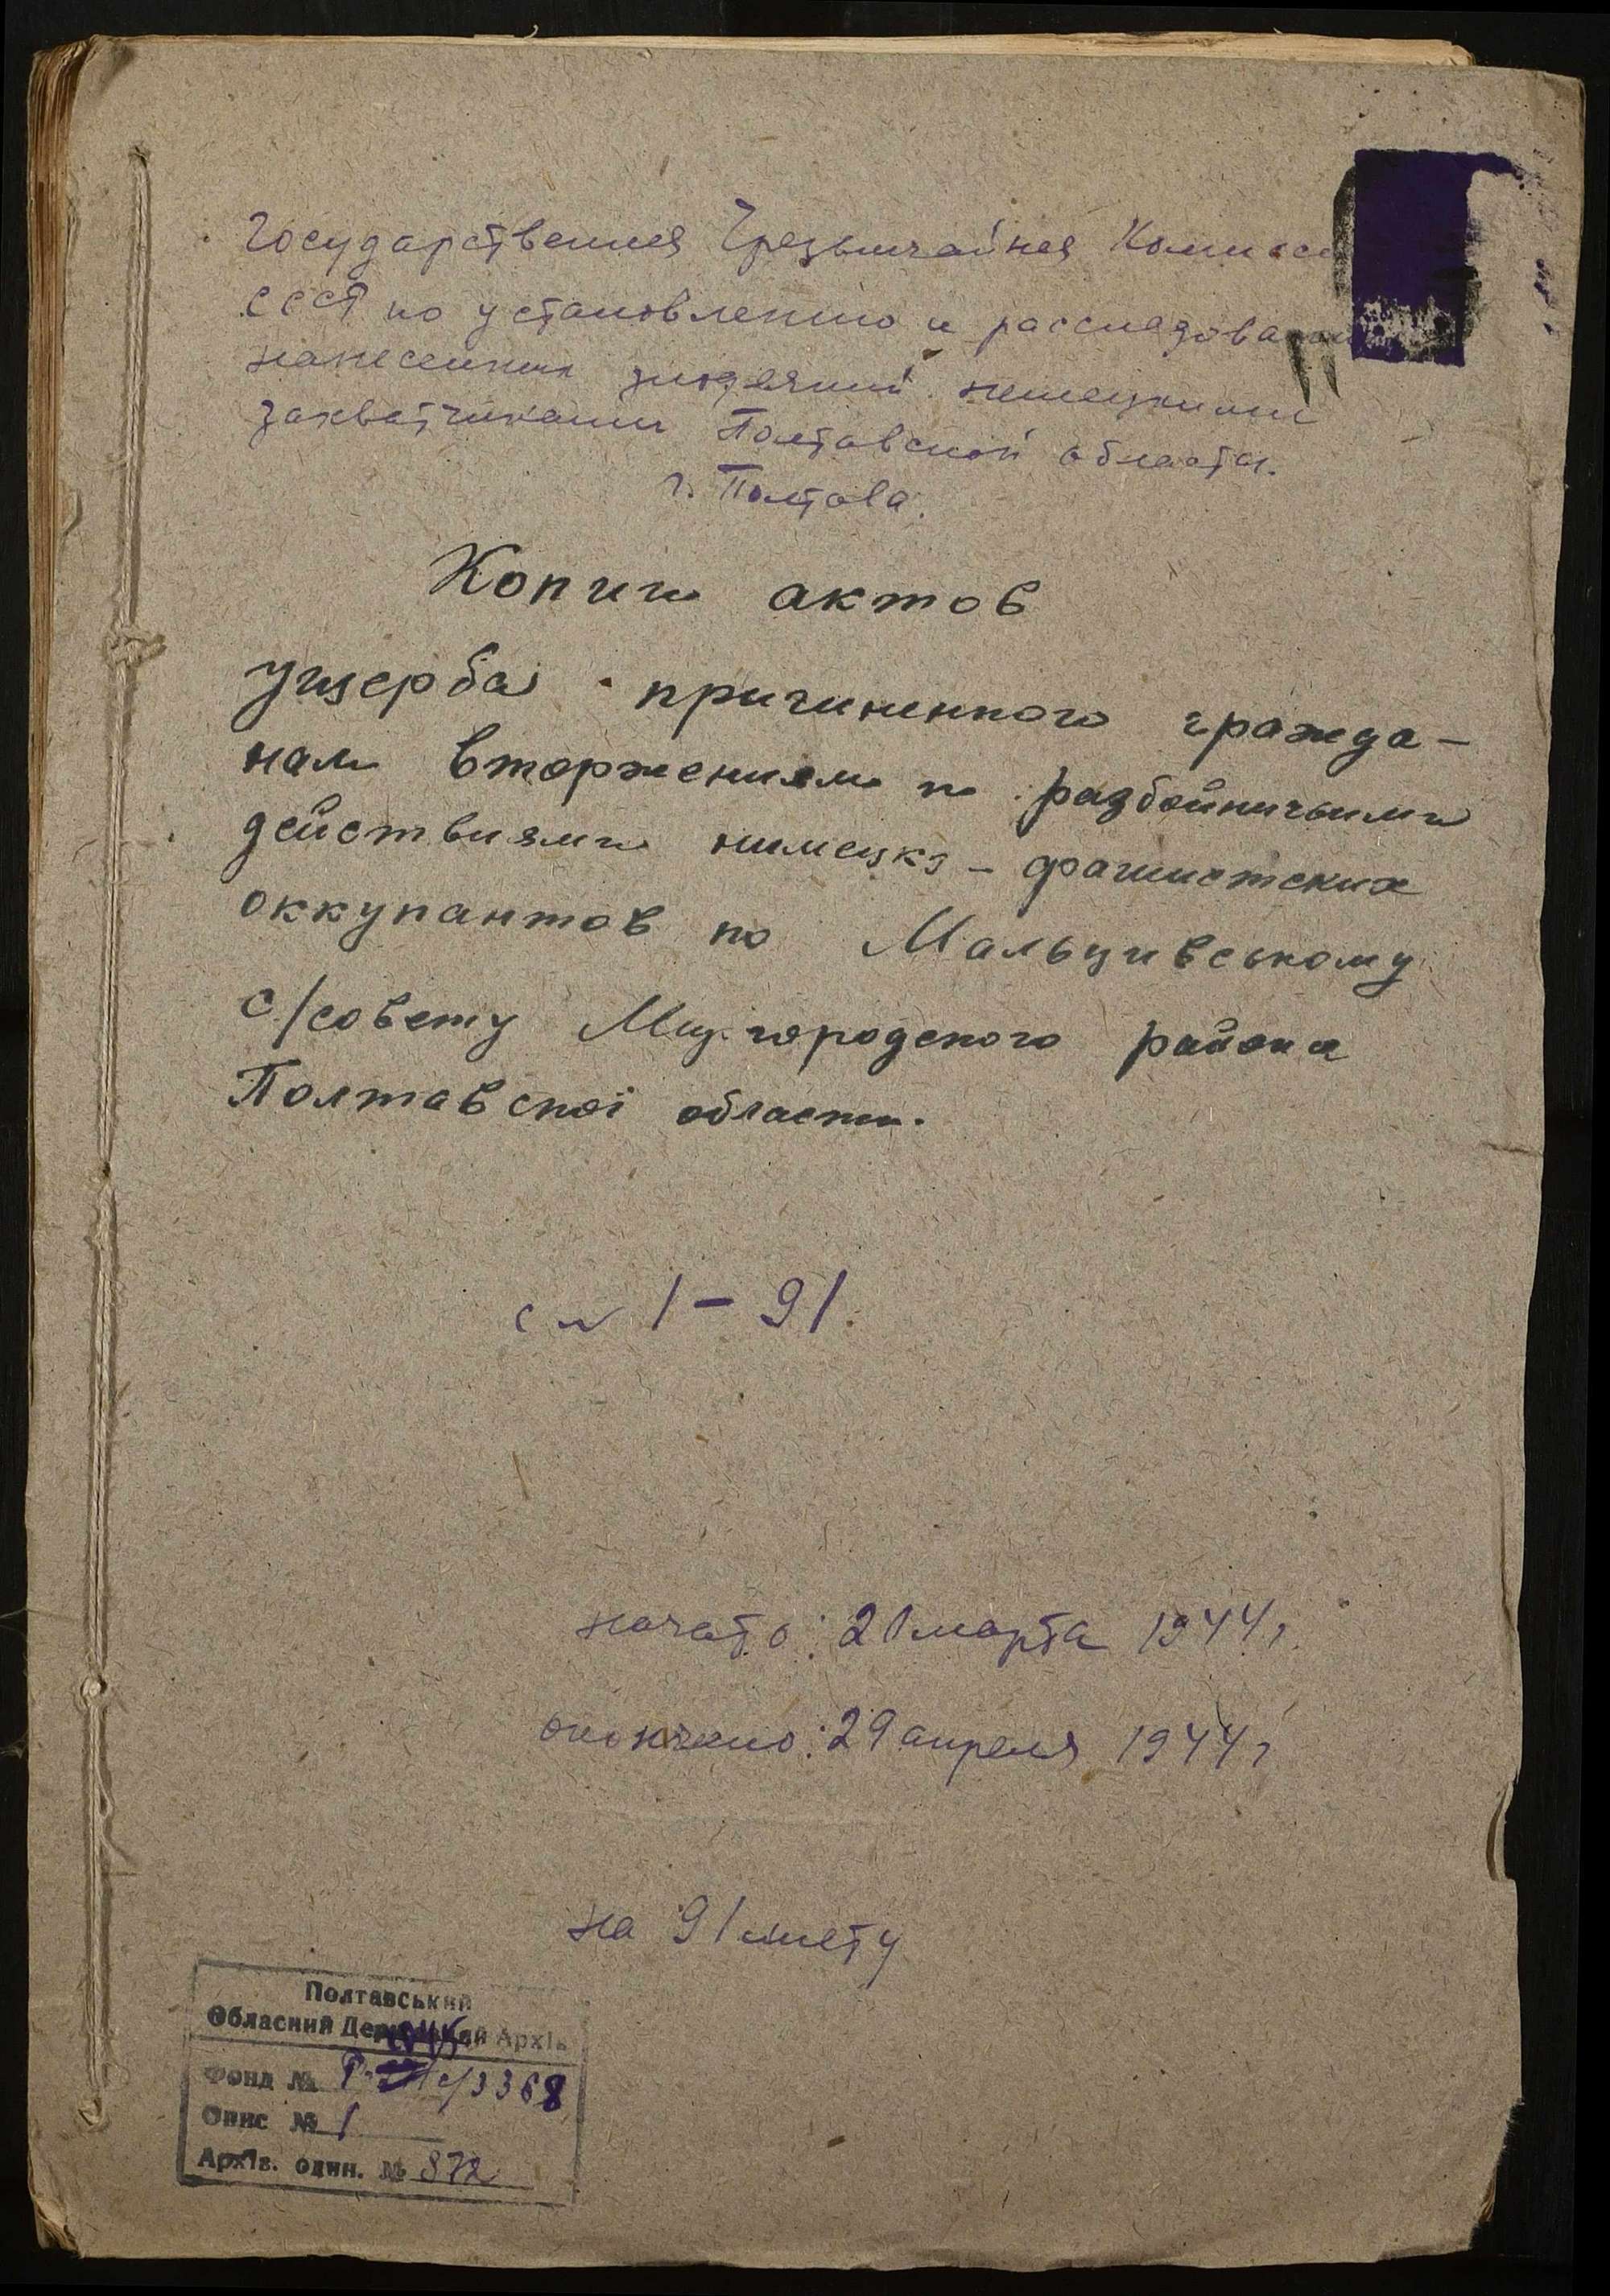 Государственная Чрезвычайная Комисси
СССР по установлению и расследовании
нанесенных злодеяний немецкими
захватчиками Полтавской области.
г. Полтава.
Копии актов
ущерба причиненного гражда-
нам вторжениям и разбойничьими
действиями нимецко-фашистских
оккупантов по Мальцивському
с/совету Миргородского района
Полтавскої области.
1-91.
начато: 20 марта 1944 г.
окончено: 29 апреля 1944 г
на 91 листу
Полтавський
Обласний Державний Архів
Фонд № Р- 3368
Опис № 1
Архів. один. № 872